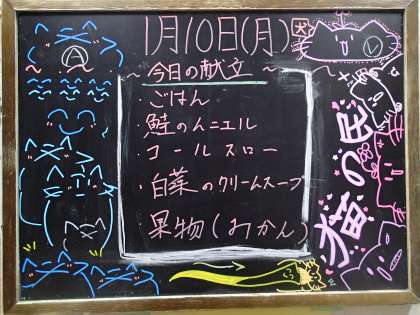 1月10日(月)
~ 今日の献立 ~
・ごはん
・鮭のムニエル
・コールスロー
・白菜のクリームスープ
・果物(みかん)
猫の民